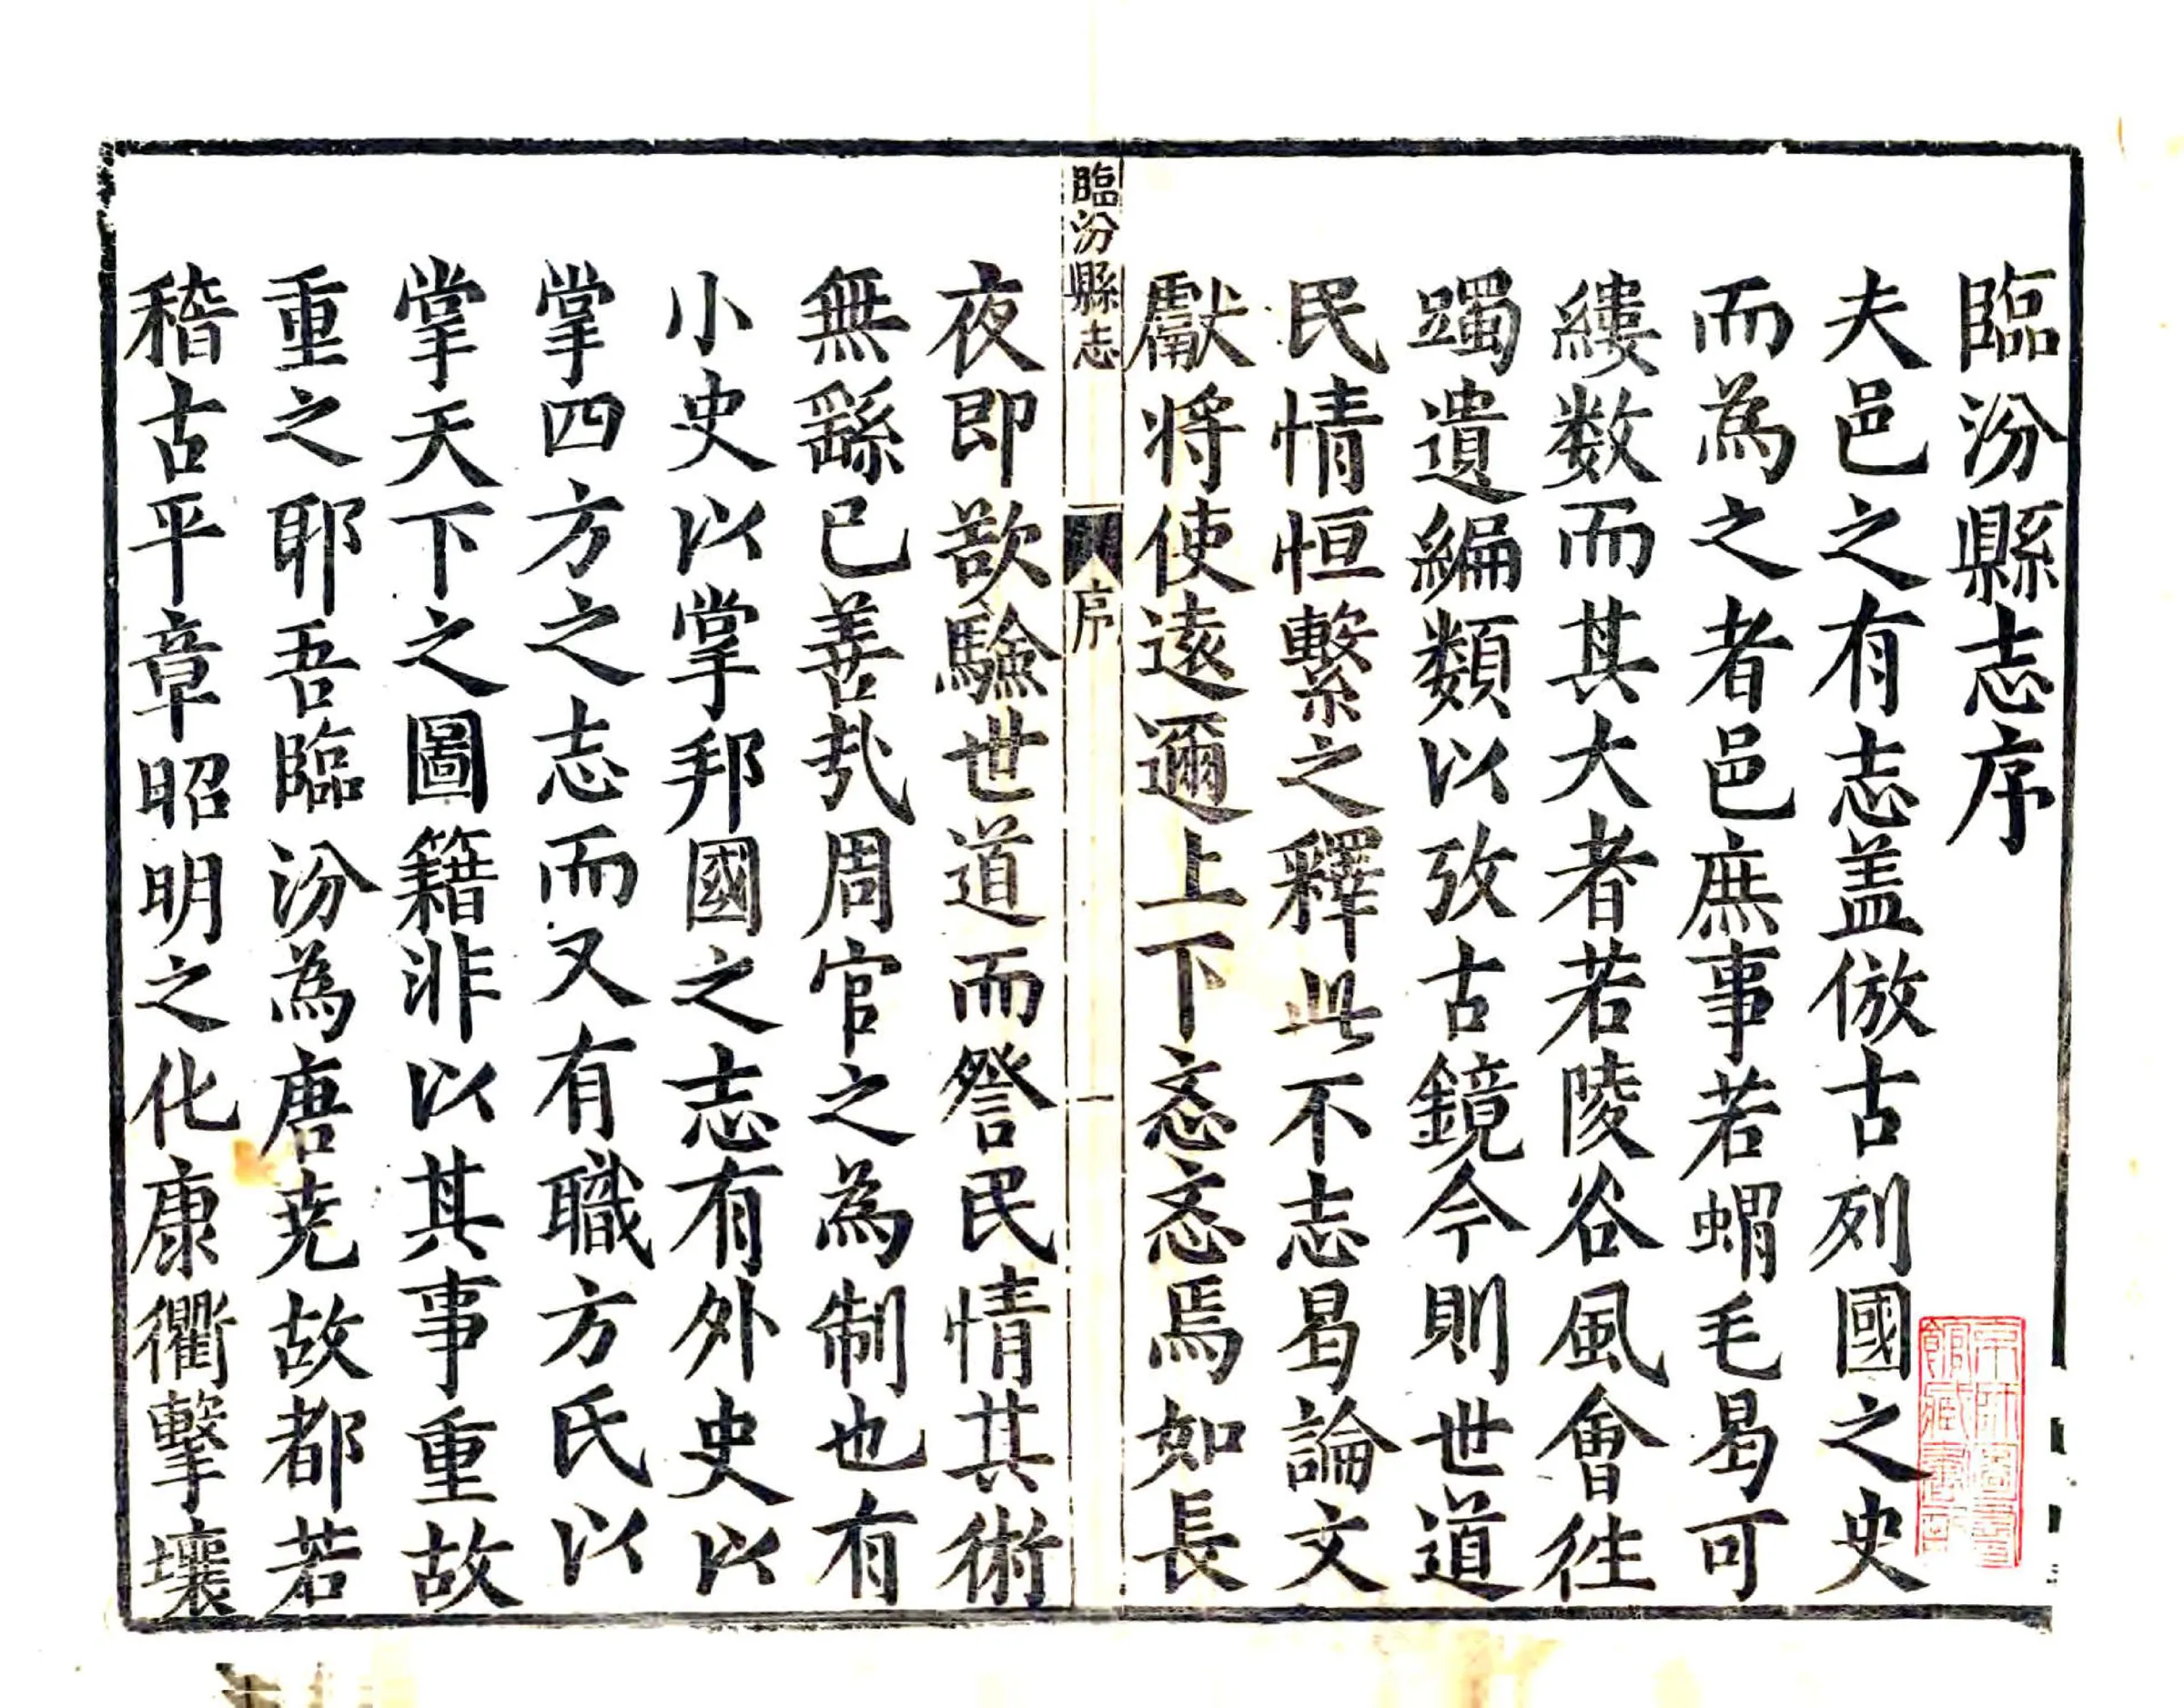 臨汾縣志序
夫邑之有志盖倣古列國之史
而為之者邑庶事若蝟毛曷可
縷数而其大者若陵谷風會徃
躅遺編類以攷古鏡今則世道
民情恒繫之釋此不志曷論文
獻将使逺邇上下忞忞焉如長
臨汾縣志
序
一
夜即欲驗世道而詧民情其術
無繇已善㢤周官之為制也有
小史以掌邦國之志有外史以
掌四方之志而又有職方氏以
掌天下之圖籍非以其事重故
重之耶吾臨汾為唐尭故都若
稽古平章昭明之化康衢擊壤